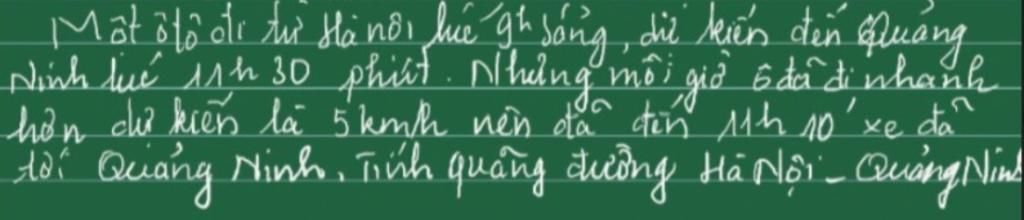 Một ôtô đi từ Hà nội lúc 9h sáng, dự kiến đến Quảng
Ninh lúc 11h 30 phút. Nhưng mỗi giờ ô đã đi nhanh
hơn dự kiến là 5km/h nên đã đến 11h 10' xe đã
tới Quảng Ninh. Tính quãng đường Hà Nội - Quảng Ninh